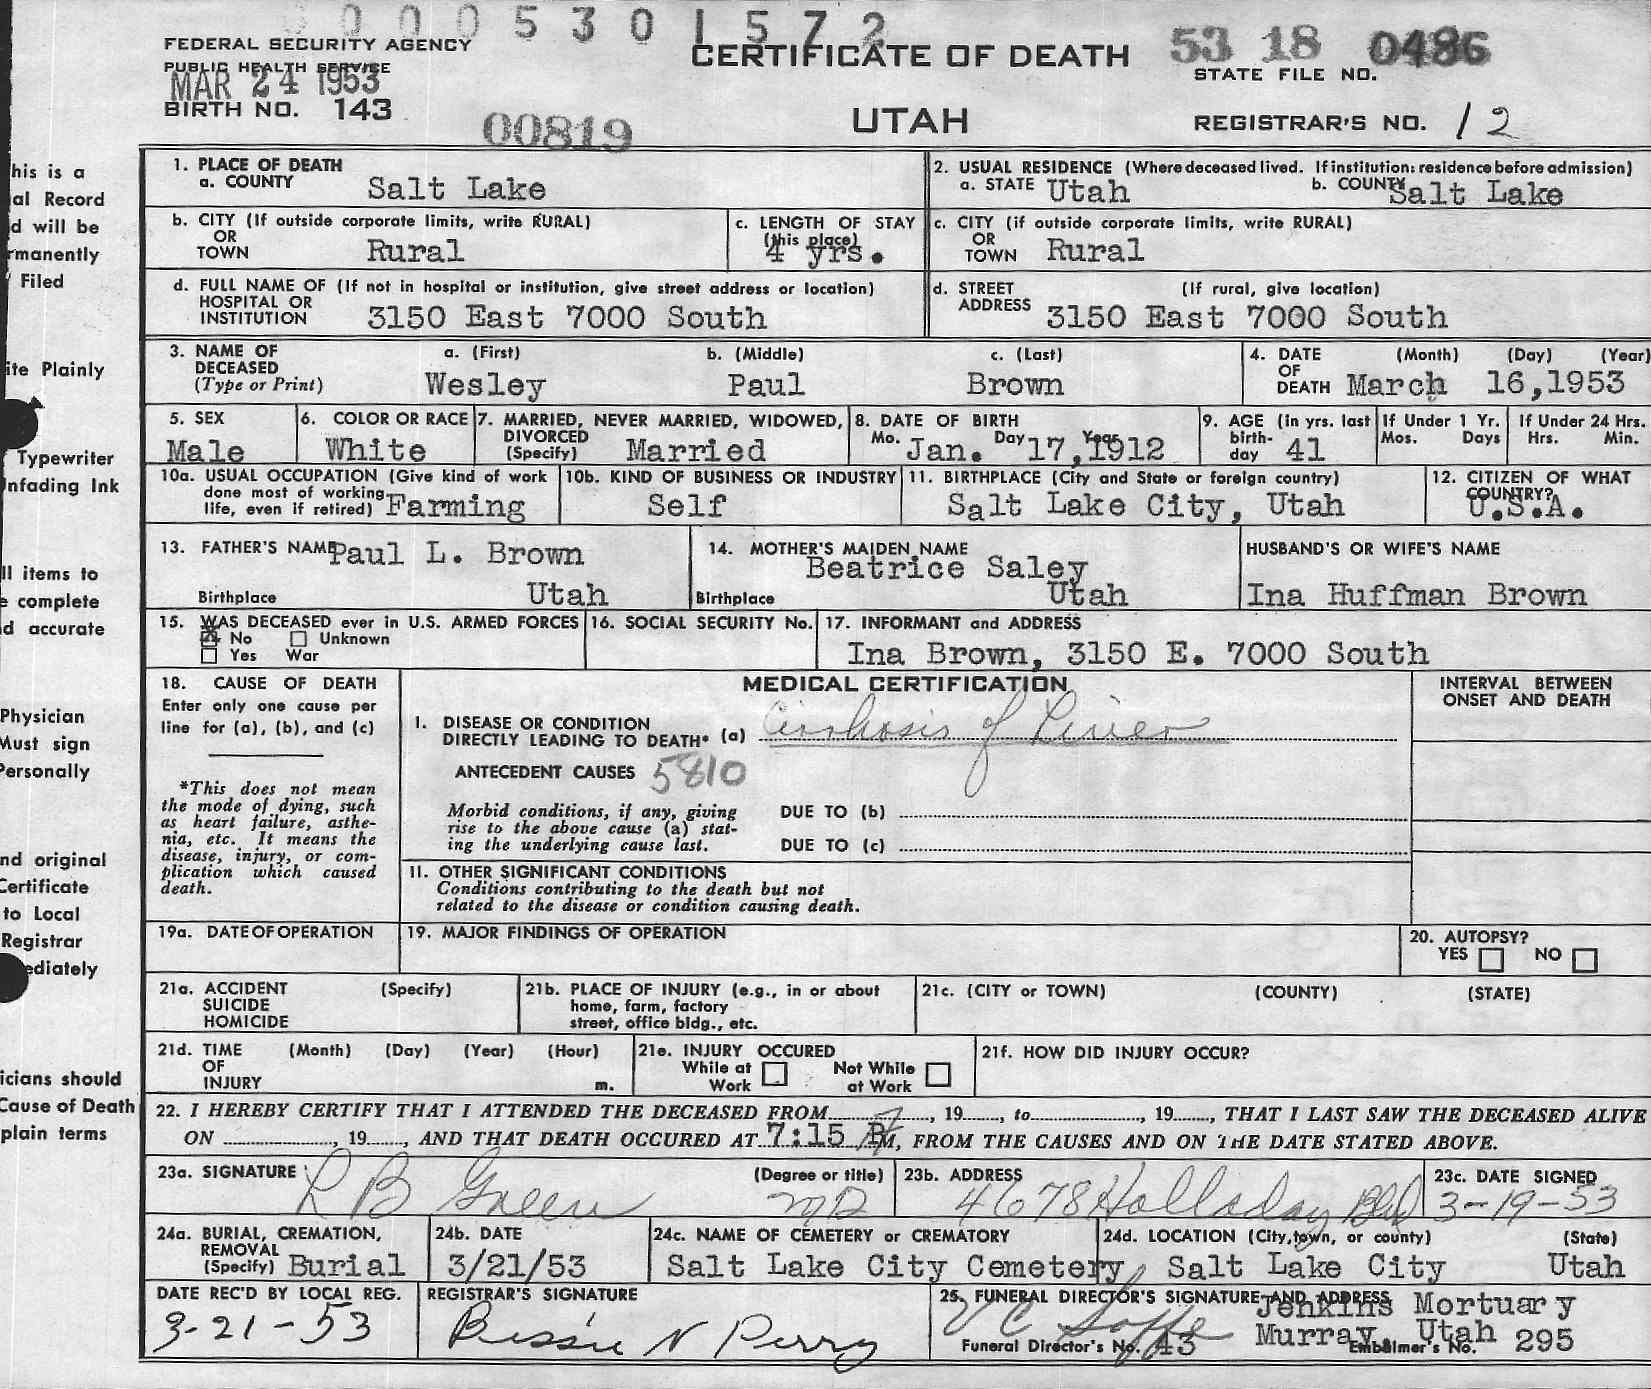 0 0 0 5 3 0 1 5 7 2
FEDERAL SECURITY AGENCY
CERTIFICATE OF DEATH
53 18 0486
PUBLIC HEALTH SERVICE
STATE FILE NO.
MAR 24 1953
BIRTH NO. 143
00819
UTAH
REGISTRAR'S NO. 12
1. PLACE OF DEATH
a. COUNTY Salt Lake
2. USUAL RESIDENCE (Where deceased lived. If institution: residence before admission)
a. STATE Utah b. COUNTY Salt Lake
b. CITY (If outside corporate limits, write RURAL)
OR
TOWN Rural
c. LENGTH OF STAY
(this place)
4 yrs.
c. CITY (if outside corporate limits, write RURAL)
OR
TOWN Rural
d. FULL NAME OF (If not in hospital or institution, give street address or location)
HOSPITAL OR
INSTITUTION 3150 East 7000 South
d. STREET (If rural, give location)
ADDRESS 3150 East 7000 South
3. NAME OF
DECEASED
(Type or Print)
a. (First) b. (Middle) c. (Last)
Wesley Paul Brown
4. DATE (Month) (Day) (Year)
OF
DEATH March 16,1953
5. SEX
Male
6. COLOR OR RACE
White
7. MARRIED, NEVER MARRIED, WIDOWED,
DIVORCED
(Specify) Married
8. DATE OF BIRTH
Mo. Day Year
Jan. 17,1912
9. AGE (in yrs. last
birth-
day 41
If Under 1 Yr.
Mos. Days
If Under 24 Hrs.
Hrs. Min.
10a. USUAL OCCUPATION (Give kind of work
done most of working
life, even if retired) Farming
10b. KIND OF BUSINESS OR INDUSTRY
Self
11. BIRTHPLACE (City and State or foreign country)
Salt Lake City, Utah
12. CITIZEN OF WHAT
COUNTRY?
U.S.A.
13. FATHER'S NAME Paul L. Brown
Birthplace Utah
14. MOTHER'S MAIDEN NAME
Beatrice Saley
Birthplace Utah
HUSBAND'S OR WIFE'S NAME
Ina Huffman Brown
15. WAS DECEASED ever in U.S. ARMED FORCES
No Unknown
Yes War
16. SOCIAL SECURITY No.
17. INFORMANT and ADDRESS
Ina Brown, 3150 E. 7000 South
18. CAUSE OF DEATH
Enter only one cause per
line for (a), (b), and (c)
*This does not mean
the mode of dying, such
as heart failure, asthe-
nia, etc. It means the
disease, injury, or com-
plication which caused
death.
MEDICAL CERTIFICATION
I. DISEASE OR CONDITION
DIRECTLY LEADING TO DEATH* (a) Cirrhosis of Liver
ANTECEDENT CAUSES 5810
Morbid conditions, if any, giving
rise to the above cause (a) stat-
ing the underlying cause last.
DUE TO (b)
DUE TO (c)
II. OTHER SIGNIFICANT CONDITIONS
Conditions contributing to the death but not
related to the disease or condition causing death.
INTERVAL BETWEEN
ONSET AND DEATH
19a. DATE OF OPERATION
19. MAJOR FINDINGS OF OPERATION
20. AUTOPSY?
YES NO
21a. ACCIDENT (Specify)
SUICIDE
HOMICIDE
21b. PLACE OF INJURY (e.g., in or about
home, farm, factory
street, office bldg., etc.
21c. (CITY or TOWN) (COUNTY) (STATE)
21d. TIME (Month) (Day) (Year) (Hour)
OF
INJURY m.
21e. INJURY OCCURED
While at Not While
Work at Work
21f. HOW DID INJURY OCCUR?
22. I HEREBY CERTIFY THAT I ATTENDED THE DECEASED FROM, 19, to, 19, THAT I LAST SAW THE DECEASED ALIVE
ON, 19, AND THAT DEATH OCCURED AT 7:15 PM, FROM THE CAUSES AND ON THE DATE STATED ABOVE.
23a. SIGNATURE (Degree or title)
L B Green MD
23b. ADDRESS
4678 Holladay Blvd
23c. DATE SIGNED
3-19-53
24a. BURIAL, CREMATION,
REMOVAL
(Specify) Burial
24b. DATE
3/21/53
24c. NAME OF CEMETERY or CREMATORY
Salt Lake City Cemetery,
24d. LOCATION (City, town, or county) (State)
Salt Lake City Utah
DATE REC'D BY LOCAL REG.
3-21-53
REGISTRAR'S SIGNATURE
Bessie N Perry
25. FUNERAL DIRECTOR'S SIGNATURE AND ADDRESS
Jenkins Mortuary
Murray, Utah
Funeral Director's No. 43
Embalmer's No. 295
his is a
al Record
d will be
rmanently
Filed
ite Plainly
Typewriter
nfading Ink
ll items to
e complete
d accurate
Physician
Must sign
Personally
nd original
Certificate
to Local
Registrar
ediately
icians should
Cause of Death
plain terms